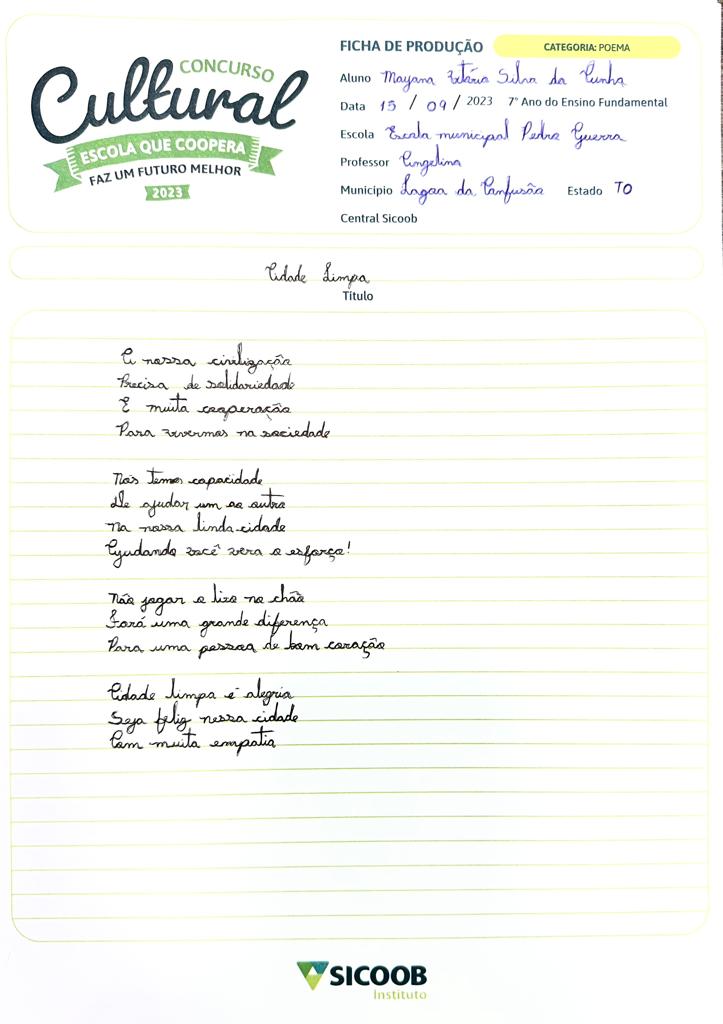 CONCURSO
Cultural
ESCOLA QUE COOPERA
FAZ UM FUTURO MELHOR
2023
FICHA DE PRODUÇÃO
CATEGORIA: POEMA
Aluno Mayana Silva da Cunha
Data 15 / 09 / 2023 7º Ano do Ensino Fundamental
Escola Escola municipal Pedra Guerra
Professor Angelina
Município Lagoa da Confusão Estado TO
Central Sicoob
Cidade Limpa
Título
A nossa civilização
Precisa de solidariedade
E muita cooperação
Para vivermos na sociedade
Nós temos capacidade
De ajudar um ao outro
Na nossa linda cidade
Ajudando você vera o esforço!
Não jogar o lixo no chão
Fará uma grande diferença
Para uma pessoa de bom coração
Cidade limpa é alegria
Seja feliz nessa cidade
Com muita empatia
SICOOB
Instituto